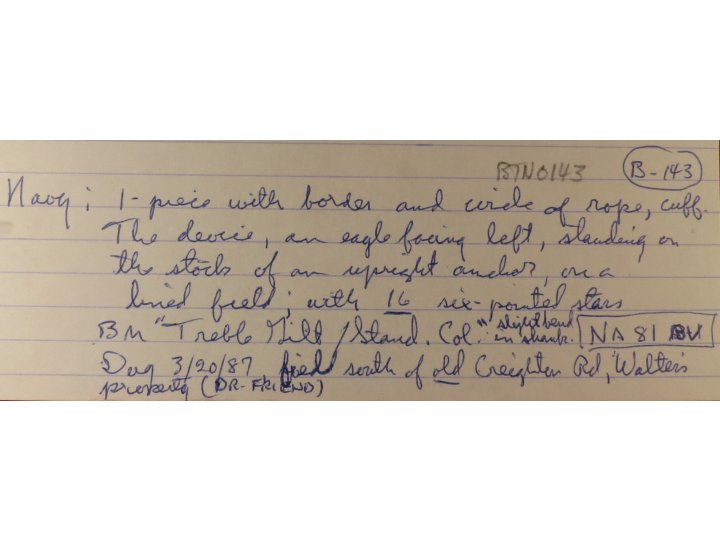 BTN0143 B-143
Navy; 1-piece with border and circle of rope, cuff.
The device, an eagle facing left, standing on
the stock of an upright anchor, on a
lined field; with 16 six-pointed stars
BM "Treble Gilt / Stand. Col." slight bend in shank. NA 81 BU
Dug 3/20/87, field south of old Creighton Rd, Walter's
property (DR-FRIEND)